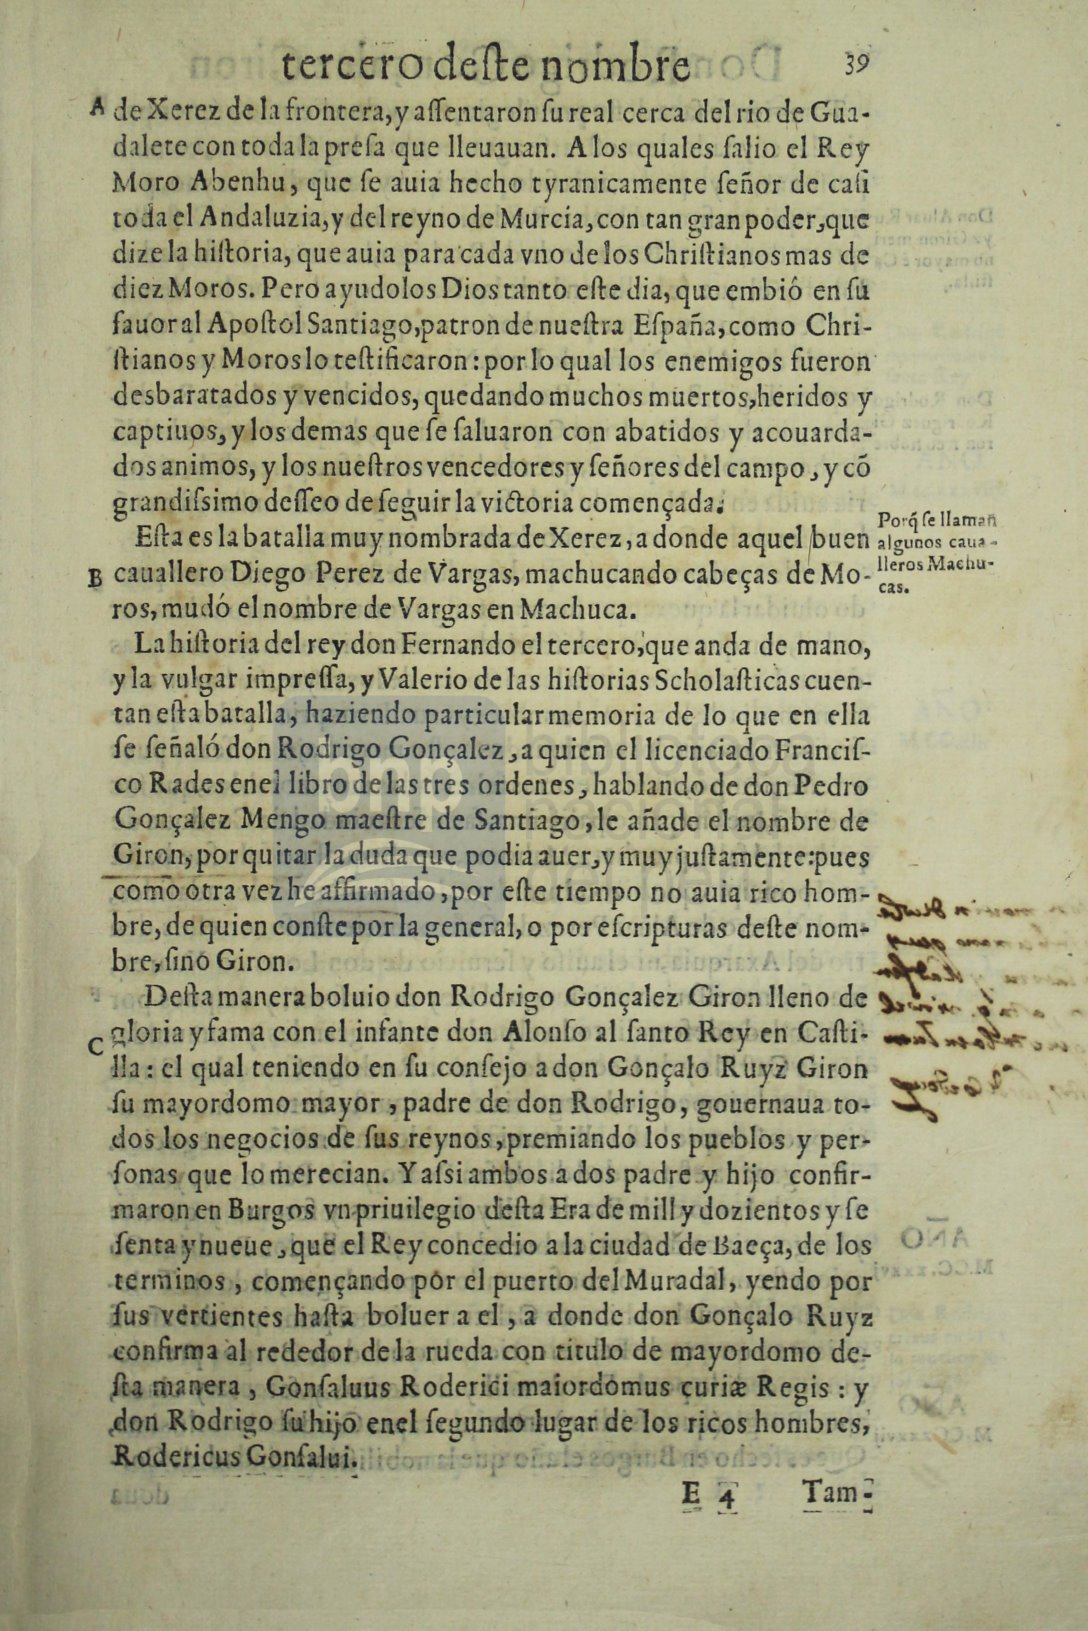 tercero deſte nombre 39
A de Xerez de la frontera, y aſſentaron ſu real cerca del rio de Gua-
dalete con toda la preſa que lleuauan. A los quales ſalio el Rey
Moro Abenhu, que ſe auia hecho tyranicamente ſeñor de caſi
toda el Andaluzia, y del reyno de Murcia, con tan gran poder, que
dize la hiſtoria, que auia para cada vno de los Chriſtianos mas de
diez Moros. Pero ayudolos Dios tanto eſte dia, que embió en ſu
fauor al Apoſtol Santiago, patron de nueſtra Eſpaña, como Chri-
ſtianos y Moros lo teſtificaron: por lo qual los enemigos fueron
desbaratados y vencidos, quedando muchos muertos, heridos y
captiuos, y los demas que ſe ſaluaron con abatidos y acouarda-
dos animos, y los nueſtros vencedores y ſeñores del campo, y cõ
grandiſsimo deſſeo de ſeguir la victoria començada.
Eſta es la batalla muy nombrada de Xerez, a donde aquel buen
B cauallero Diego Perez de Vargas, machucando cabeças de Mo-
ros, mudó el nombre de Vargas en Machuca.
Porq̃ ſe llaman
algunos caua-
lleros Machu-
cas.
La hiſtoria del rey don Fernando el tercero, que anda de mano,
y la vulgar impreſſa, y Valerio de las hiſtorias Scholaſticas cuen-
tan eſta batalla, haziendo particular memoria de lo que en ella
ſe ſeñaló don Rodrigo Gonçalez, a quien el licenciado Franciſ-
co Rades en el libro de las tres ordenes, hablando de don Pedro
Gonçalez Mengo maeſtre de Santiago, le añade el nombre de
Giron, por quitar la duda que podia auer, y muy juſtamente: pues
como otra vez he affirmado, por eſte tiempo no auia rico hom-
bre, de quien conſte por la general, o por eſcripturas deſte nom-
bre, ſino Giron.
Deſta manera boluio don Rodrigo Gonçalez Giron lleno de
C gloria y fama con el infante don Alonſo al ſanto Rey en Caſti-
lla: el qual teniendo en ſu conſejo a don Gonçalo Ruyz Giron
ſu mayordomo mayor, padre de don Rodrigo, gouernaua to-
dos los negocios de ſus reynos, premiando los pueblos y per-
ſonas que lo merecian. Y aſsi ambos a dos padre y hijo confir-
maron en Burgos vn priuilegio deſta Era de mill y dozientos y ſe
ſenta y nueue, que el Rey concedio a la ciudad de Baeça, de los
terminos, començando por el puerto del Muradal, yendo por
ſus vertientes haſta boluer a el, a donde don Gonçalo Ruyz
confirma al rededor de la rueda con titulo de mayordomo de-
ſta manera, Gonſaluus Roderici maiordomus curiæ Regis: y
don Rodrigo ſu hijo en el ſegundo lugar de los ricos hombres,
Rodericus Gonſalui.
E 4 Tam-